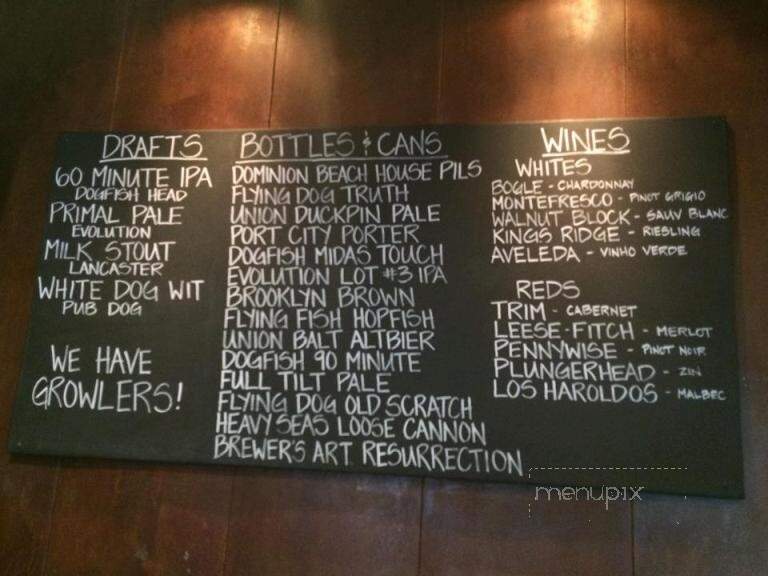 DRAFTS
60 MINUTE IPA
DOGFISH HEAD
PRIMAL PALE
EVOLUTION
MILK STOUT
LANCASTER
WHITE DOG WIT
PUB DOG
WE HAVE
GROWLERS!
BOTTLES & CANS
DOMINION BEACH HOUSE PILS
FLYING DOG TRUTH
UNION DUCKPIN PALE
PORT CITY PORTER
DOGFISH MIDAS TOUCH
EVOLUTION LOT #3 IPA
BROOKLYN BROWN
FLYING FISH HOPFISH
UNION BALT ALTBIER
DOGFISH 90 MINUTE
FULL TILT PALE
FLYING DOG OLD SCRATCH
HEAVY SEAS LOOSE CANNON
BREWER'S ART RESURRECTION
WINES
WHITES
BOGLE - CHARDONNAY
MONTEFRESCO - PINOT GRIGIO
WALNUT BLOCK - SAUV BLANC
KINGS RIDGE - RIESLING
AVELEDA - VINHO VERDE
REDS
TRIM - CABERNET
LEESE-FITCH - MERLOT
PENNYWISE - PINOT NOIR
PLUNGERHEAD - ZIN
LOS HAROLDOS - MALBEC
menupix